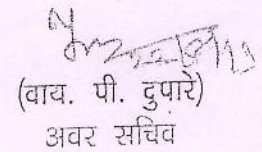 (वाय. पी. दुपारे)
अवर सचिव